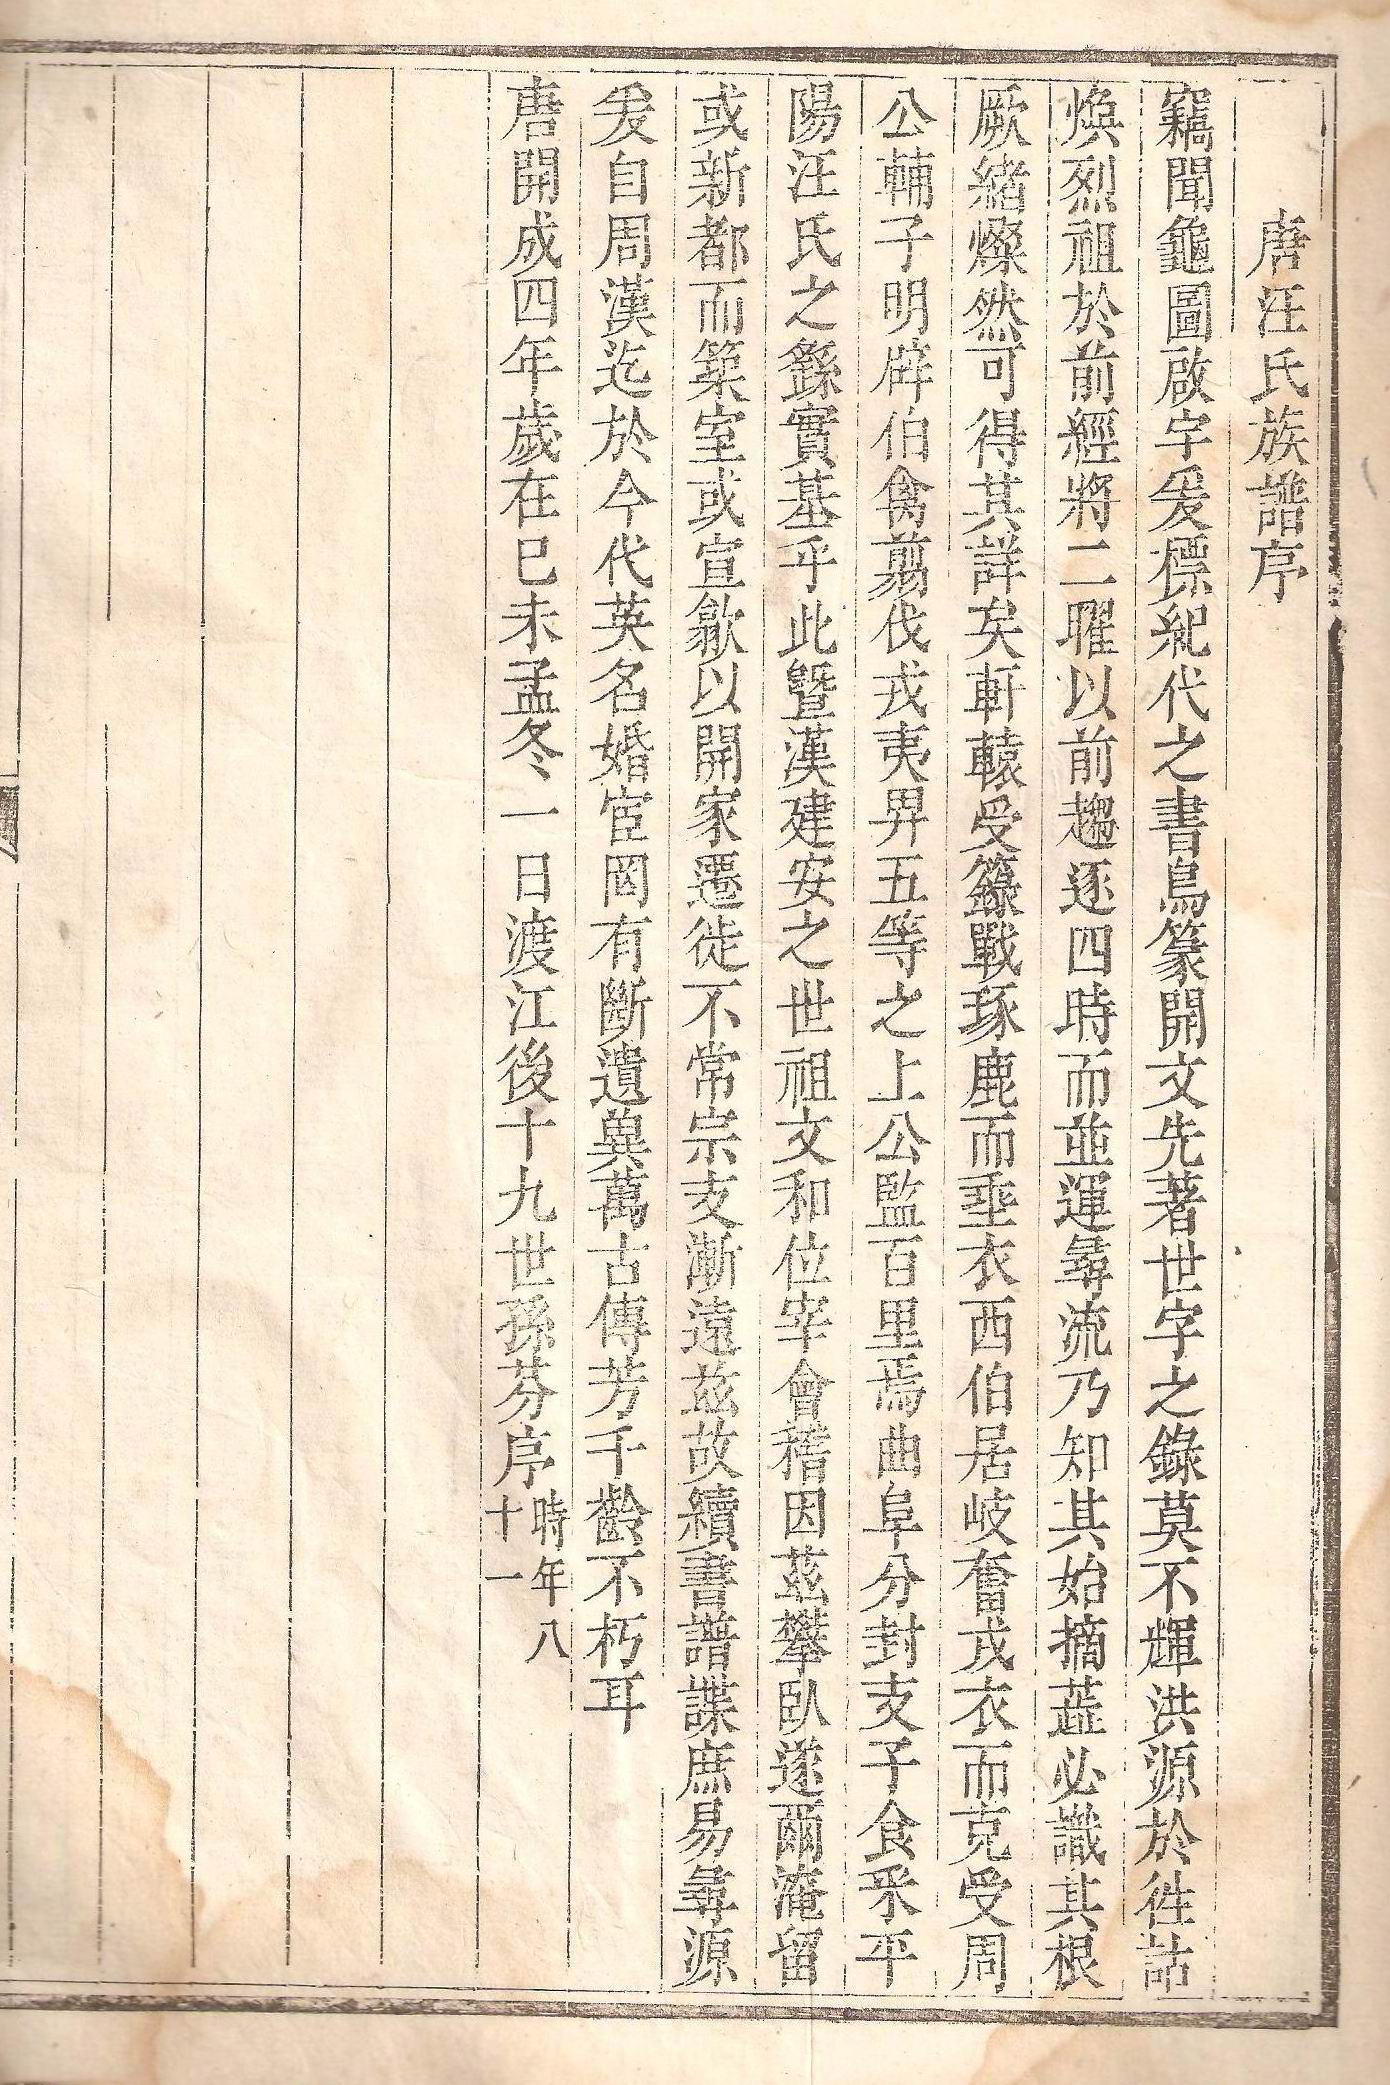 唐汪氏族譜序
竊聞龜圖啟字爰標紀代之書鳥篆開文先著世字之錄莫不輝洪源於徃詁
煥烈祖於前經將二曜以前趨逐四時而並運尋流乃知其始摘蕋必識其根
厥緒燦然可得其詳矣軒轅受籙戰琢鹿而埀衣西伯居岐奮戎衣而克受周
公輔子明辟伯禽翦伐戎夷畀五等之上公監百里焉曲阜分封支子食釆平
陽汪氏之繇實基乎此曁漢建安之世祖文和位宰會稽因茲攀臥遂爾淹留
或新都而築室或宣歙以開家遷徙不常宗支漸遠茲故續書譜諜庶易尋源
爰自周漢迄於今代英名婚宦罔有斷遺兾萬古傳芳千齡不朽耳
唐開成四年歲在巳未孟冬一日渡江後十九世孫芬序
時年八
十一